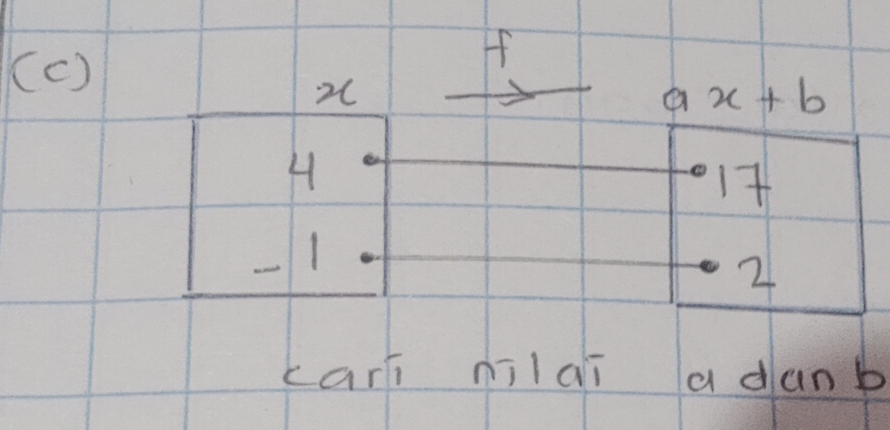 (c)
f
x ax + b
4 17
-1 2
cari nilai a dan b